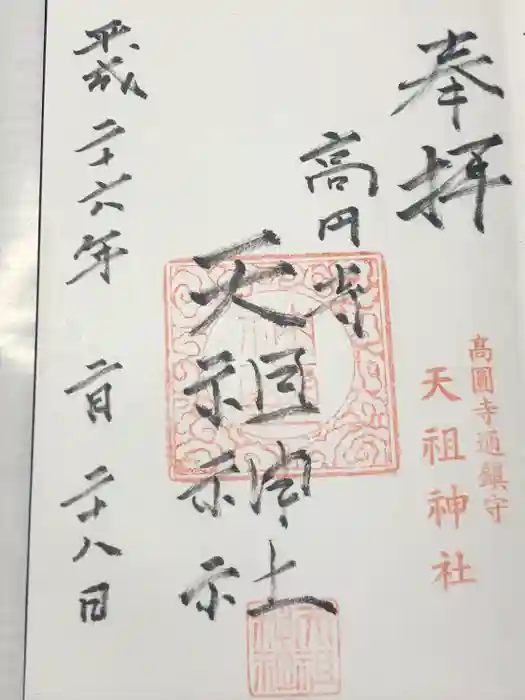 奉拝
高圓寺過鎮守
天祖神社
高円寺
天祖神社
平成二十六年 二月 二十八日